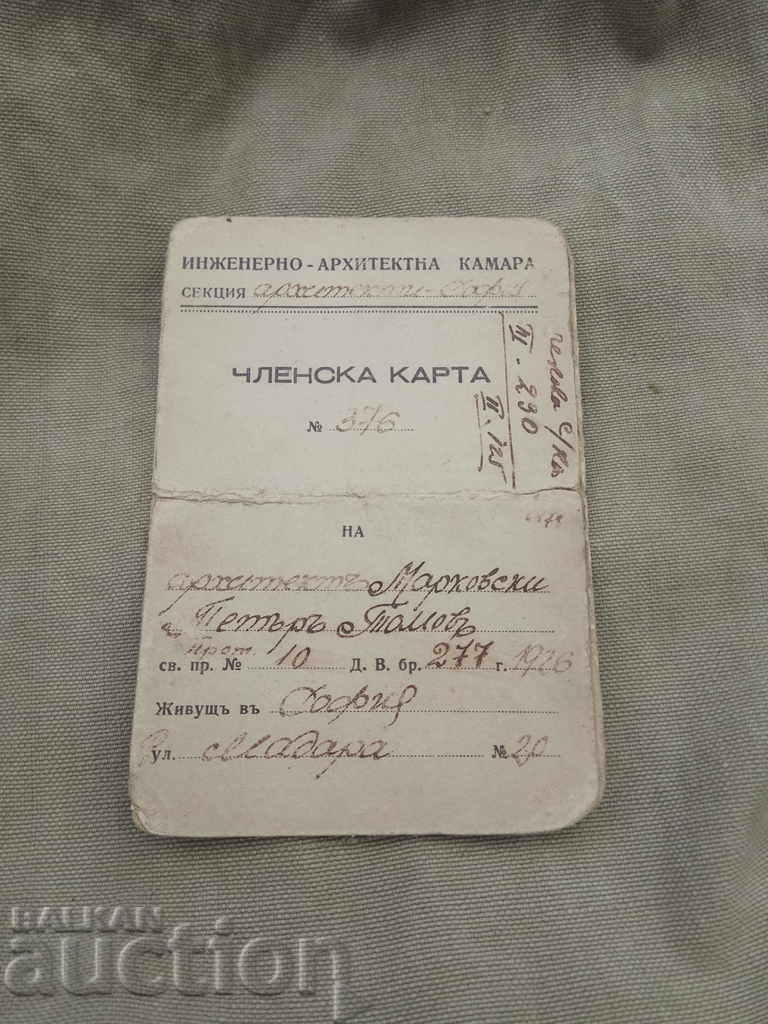 ИНЖЕНЕРНО - АРХИТЕКТНА КАМАРА
СЕКЦИЯ архитекти - София
ЧЛЕНСКА КАРТА
№ 376
IV - 290
II. 125
НА
архитектъ Марковски
Петъръ Томовъ
прот.
св. пр. № 10 Д. В. бр. 277 г. 1926
Живущъ въ София
ул. Мадара № 20
BALKAN
auction